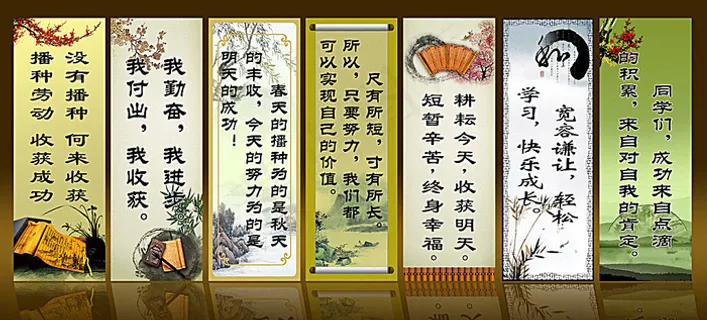 没有播种 何来收获
播种劳动 收获成功
我勤奋，我进步。
我付出，我收获。
春天的播种为的是秋天
的丰收，今天的努力为的是
明天的成功！
尺有所短，寸有所长。
所以，只要努力，我们都
可以实现自己的价值。
耕耘今天，收获明天。
短暂辛苦，终身幸福。
宽容谦让，轻松
学习，快乐成长。
同学们，成功来自点滴
的积累，来自对自我的肯定。